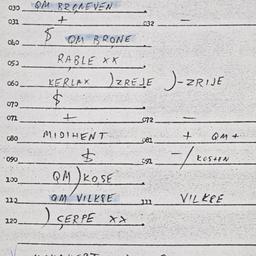 030 QM BRONEVEN
031 + 032 -
040 $ QM BRONE
050 RABLE XX
060 KERLAX )ZREJE )-ZRIJE
070 $
071 + 072 -
080 MIDIHENT 081 + QM+
090 $ 091 -/ KOSHON
100 QM)KOSE
110 QM VILKPE 111 VILKPE
120 )CERPE XX